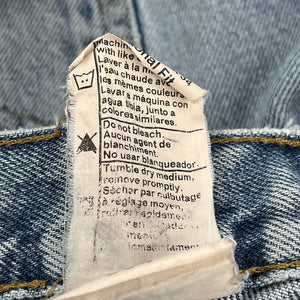 nal Fit
Machin
with like
Laver à la m
l'eau chaude avec
les mêmes couleurs.
Lavar a máquina con
agua tibia, junto a
colores similares.
Do not bleach.
Aucun agent de
blanchiment.
No usar blanqueador.
Tumble dry medium,
remove promptly.
Séchar par culbutage
à réglage moyen,
retirer rapidement